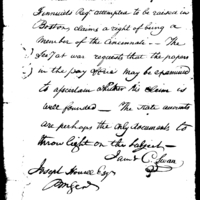 Regt attempted to be raised in
Boston, claims a right of being a
Member of the Cincinnati -- The
Secy at war requests that the papers
in the pay office may be examined
to ascertain whether his claim is
well founded -- The state accounts
are perhaps the only documents to
throw light on the subject --
Joseph Howell Esq